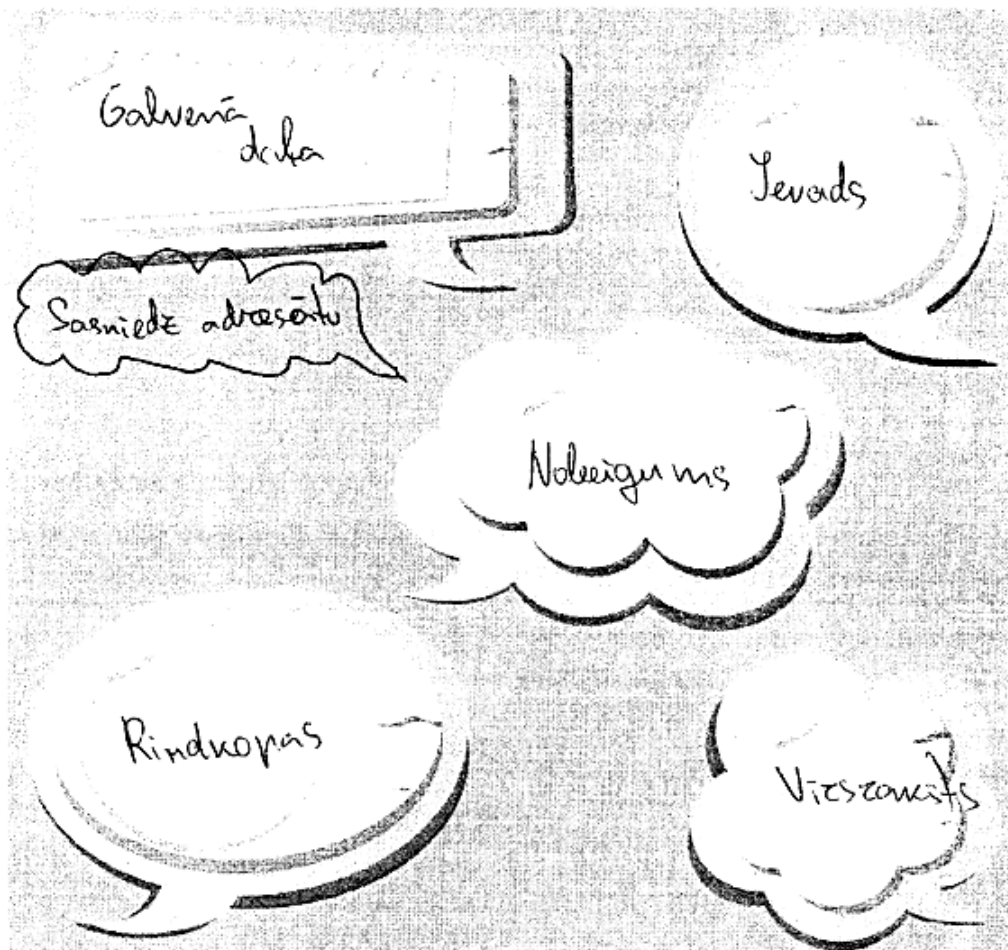 Galvenā
daļa
Ievads
Sasniedz adresātu
Nobeigums
Rindkopas
Virsraksts